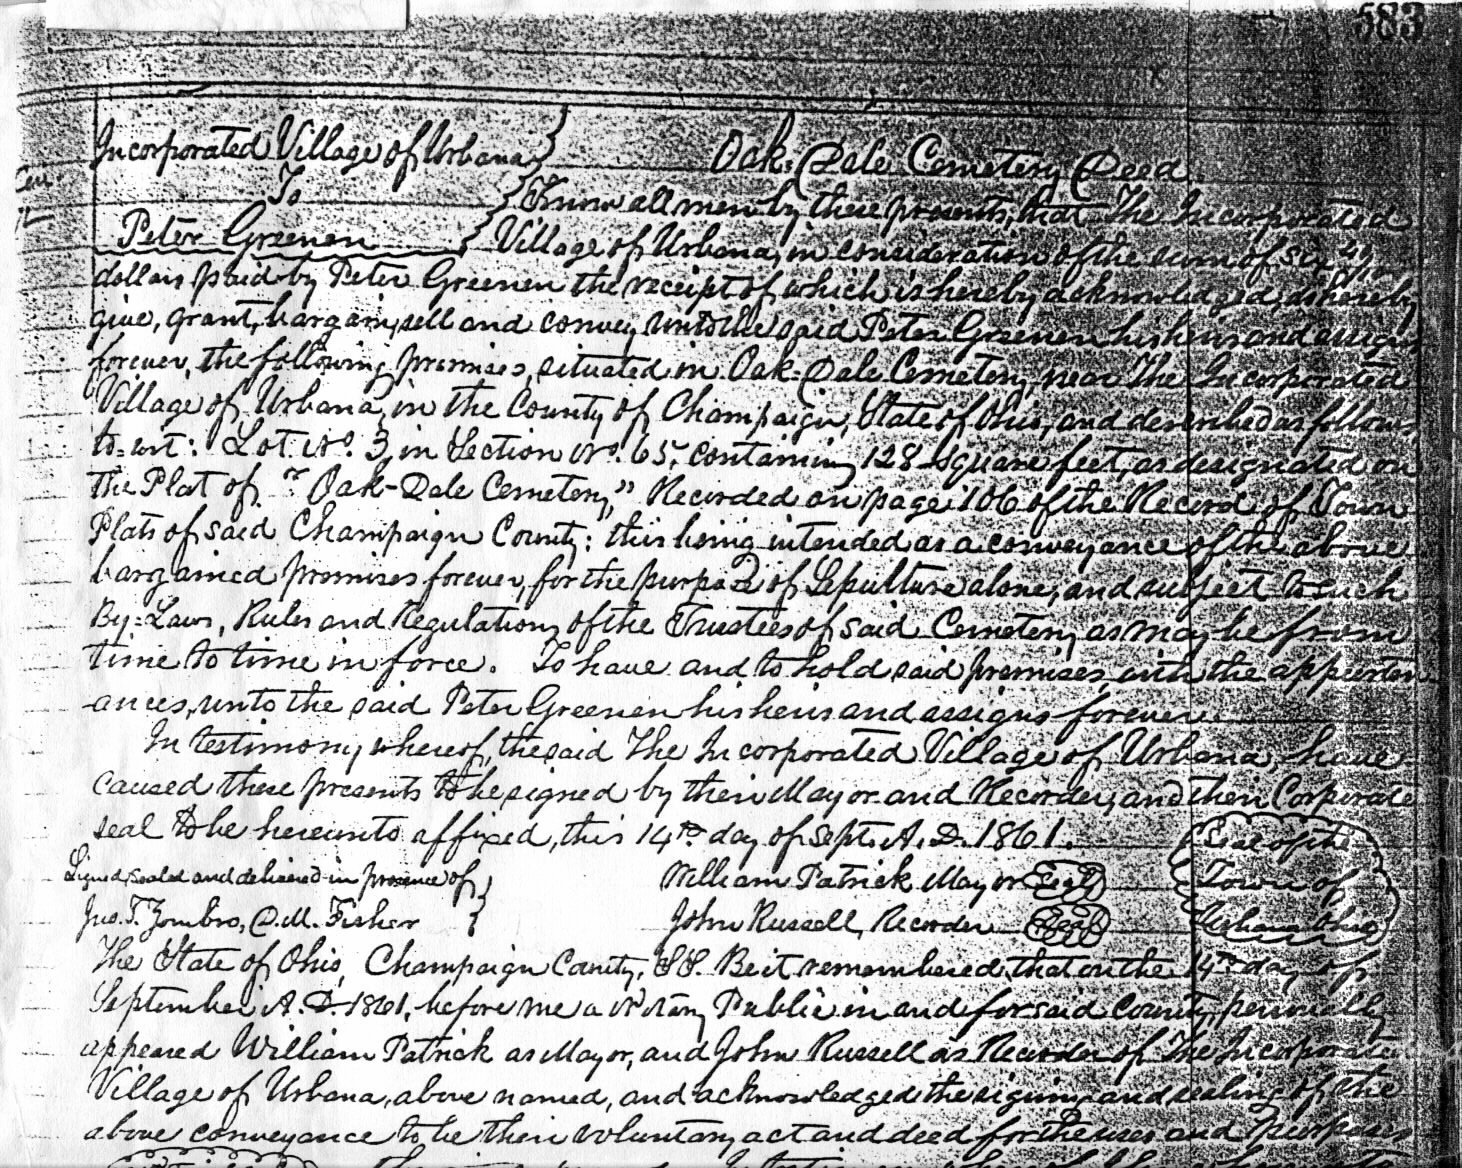 583
Incorporated Village of Urbana
Oak-Dale Cemetery Deed.
To
Peter Greenen
Know all men by these presents, that The Incorporated
Village of Urbana, in consideration of the sum of six 40/100
dollars paid by Peter Greenen the receipt of which is hereby acknowledged, do hereby
give, grant, bargain, sell and convey unto the said Peter Greenen his heirs and assigns
forever, the following premises, situated in Oak-Dale Cemetery, near The Incorporated
Village of Urbana, in the County of Champaign, State of Ohio, and described as follows,
to-wit: Lot No. 3, in Section No. 65, containing 128 square feet, as designated on
the Plat of "Oak-Dale Cemetery," Recorded on page 106 of the Record of Town
Plats of said Champaign County: this being intended as a conveyance of the above
bargained premises forever, for the purpose of Sepulture alone, and subject to such
By-Laws, Rules and Regulations of the Trustees of said Cemetery as may be from
time to time in force. To have and to hold said premises, with the appurten-
ances, unto the said Peter Greenen his heirs and assigns forever.
In testimony whereof, the said The Incorporated Village of Urbana, have
caused these presents to be signed by their Mayor and Recorder, and their Corporate
seal to be hereunto affixed, this 14th day of Sept. A.D. 1861.
Signed, sealed and delivered in presence of
Jno. T. Zombro, D.M. Fisher
William Patrick Mayor Seal
John Russell, Recorder Seal
Seal of the
Town of
Urbana Ohio
The State of Ohio, Champaign County, SS. Be it remembered that on the 14th day of
September A.D. 1861, before me a Notary Public in and for said County, personally
appeared William Patrick as Mayor, and John Russell as Recorder of The Incorporated
Village of Urbana, above named, and acknowledged the signing and sealing of the
above conveyance to be their voluntary act and deed for the uses and purposes